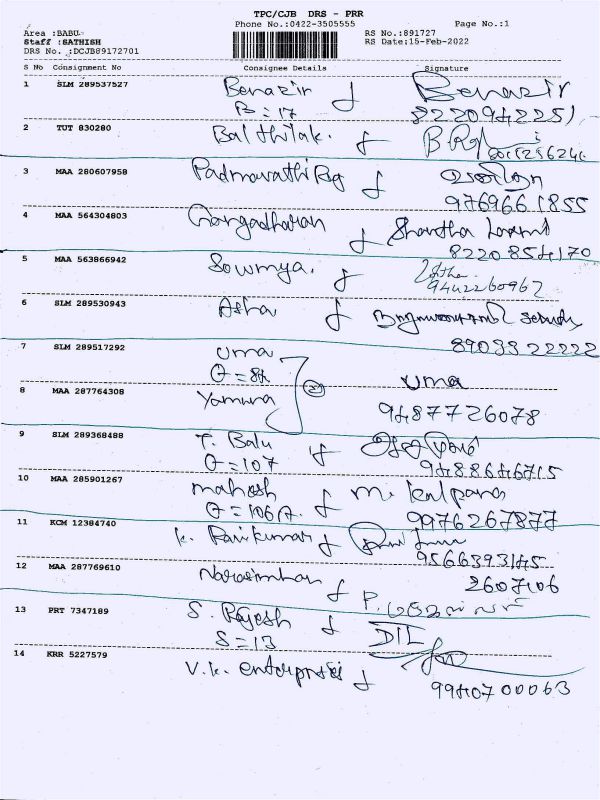 TPC/CJB DRS - PRR
Phone No.:0422-3505555 Page No.:1
Area :BABU RS No.:891727
Staff :SATHISH RS Date:15-Feb-2022
DRS No. :DCJB89172701
S No Consignment No Consignee Details Signature
1 SLM 289537527 Benazir Benazir
B=17 8220942251
2 TUT 830280 Bal thilak.
3 MAA 280607958
9769661855
4 MAA 564304803 Gangadharan Shantha Laxmi
8220854170
5 MAA 563866942 Sowmya.
9442260962
6 SLM 289530943 Asha
8903322222
7 SLM 289517292 Uma
8 MAA 287764308 Yamuna Uma
9487726078
9 SLM 289368488 T. Balu
107 9488646715
10 MAA 285901267 mahesh m. kalpana
106A. 9976267877
11 KCM 12384740 K. Ravikumar
9566393145
12 MAA 287769610 Narasimhan 2607406
13 PRT 7347189 S. Rajesh DIL
S=13
14 KRR 5227579 V.K. enterprises
9940700063